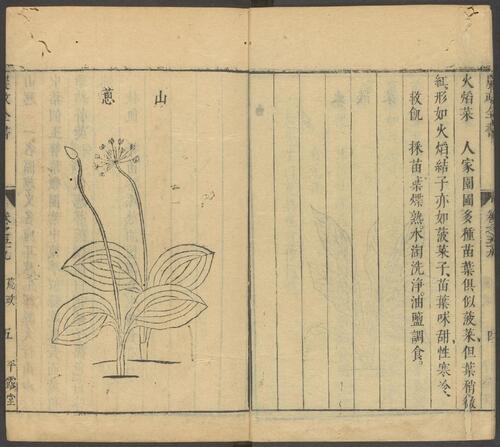 火焰菜　人家園圃多種苗葉俱似菠菜但葉稍微
紅形如火焰結子亦如菠菜子苗葉味甜性寒冷
救飢　採苗葉煠熟水淘洗淨油鹽調食
山
蔥
荒政
五
平露堂